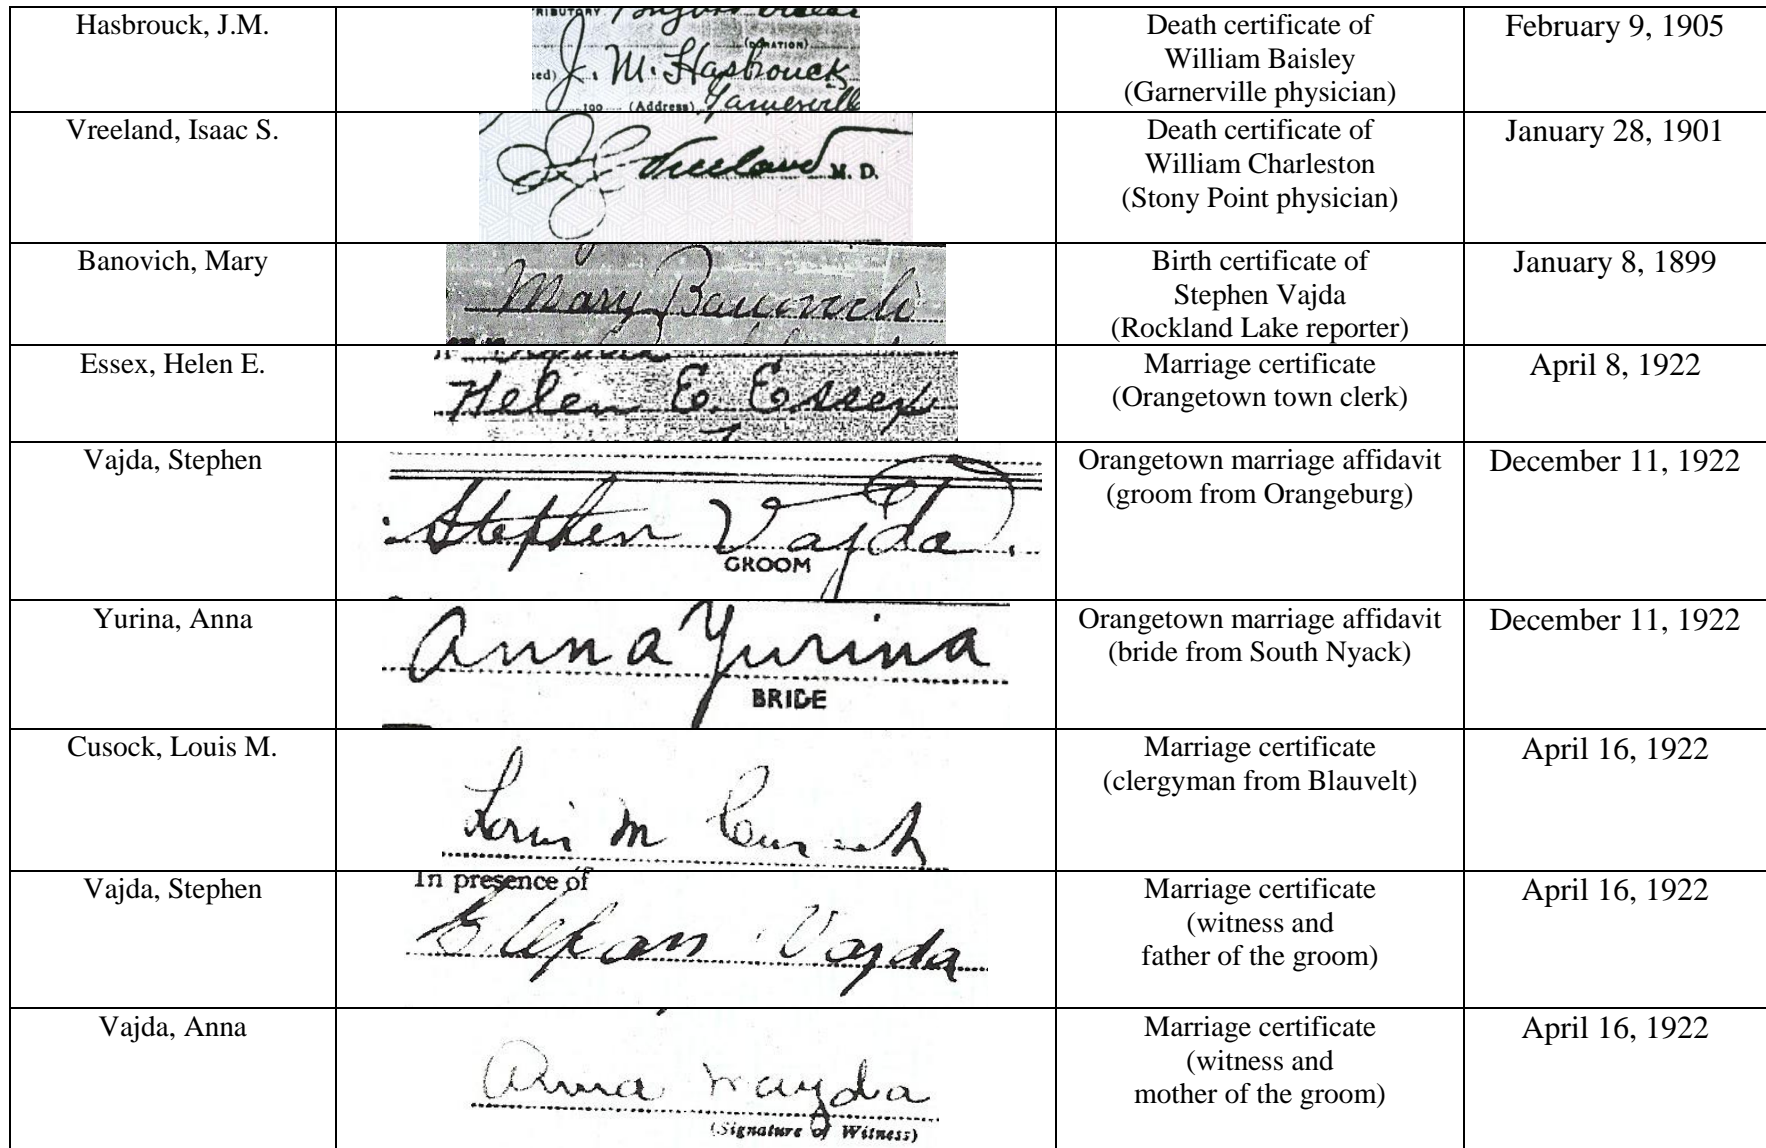 Hasbrouck, J.M.
RIBUTORY
(DURATION)
ned) J. M. Hasbrouck
190 (Address) Garnerville
Death certificate of
William Baisley
(Garnerville physician)
February 9, 1905
Vreeland, Isaac S.
Vreeland M. D.
Death certificate of
William Charleston
(Stony Point physician)
January 28, 1901
Banovich, Mary
Mary Banovich
Birth certificate of
Stephen Vajda
(Rockland Lake reporter)
January 8, 1899
Essex, Helen E.
Helen E. Essex
Marriage certificate
(Orangetown town clerk)
April 8, 1922
Vajda, Stephen
Stephen Vajda.
GROOM
Orangetown marriage affidavit
(groom from Orangeburg)
December 11, 1922
Yurina, Anna
Anna Yurina
BRIDE
Orangetown marriage affidavit
(bride from South Nyack)
December 11, 1922
Cusock, Louis M.
Louis M Cusock
Marriage certificate
(clergyman from Blauvelt)
April 16, 1922
Vajda, Stephen
In presence of
Stefan Vajda
Marriage certificate
(witness and
father of the groom)
April 16, 1922
Vajda, Anna
Anna Wayda
(Signature of Witness)
Marriage certificate
(witness and
mother of the groom)
April 16, 1922